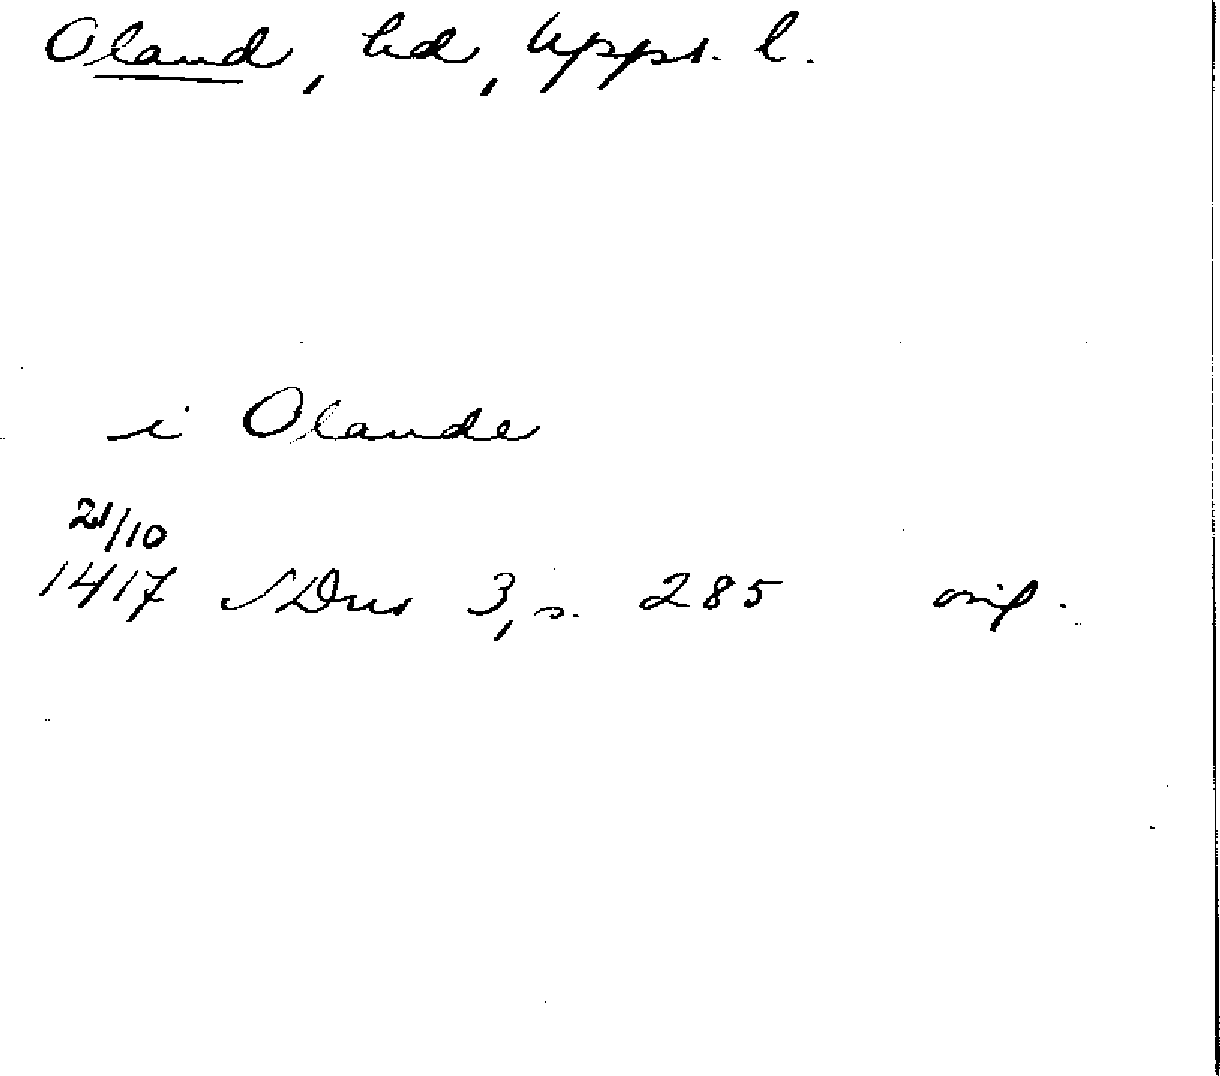 Oland, hd, Upps. l.
i Olande
21/10
1417 SDns 3, s. 285 orig.